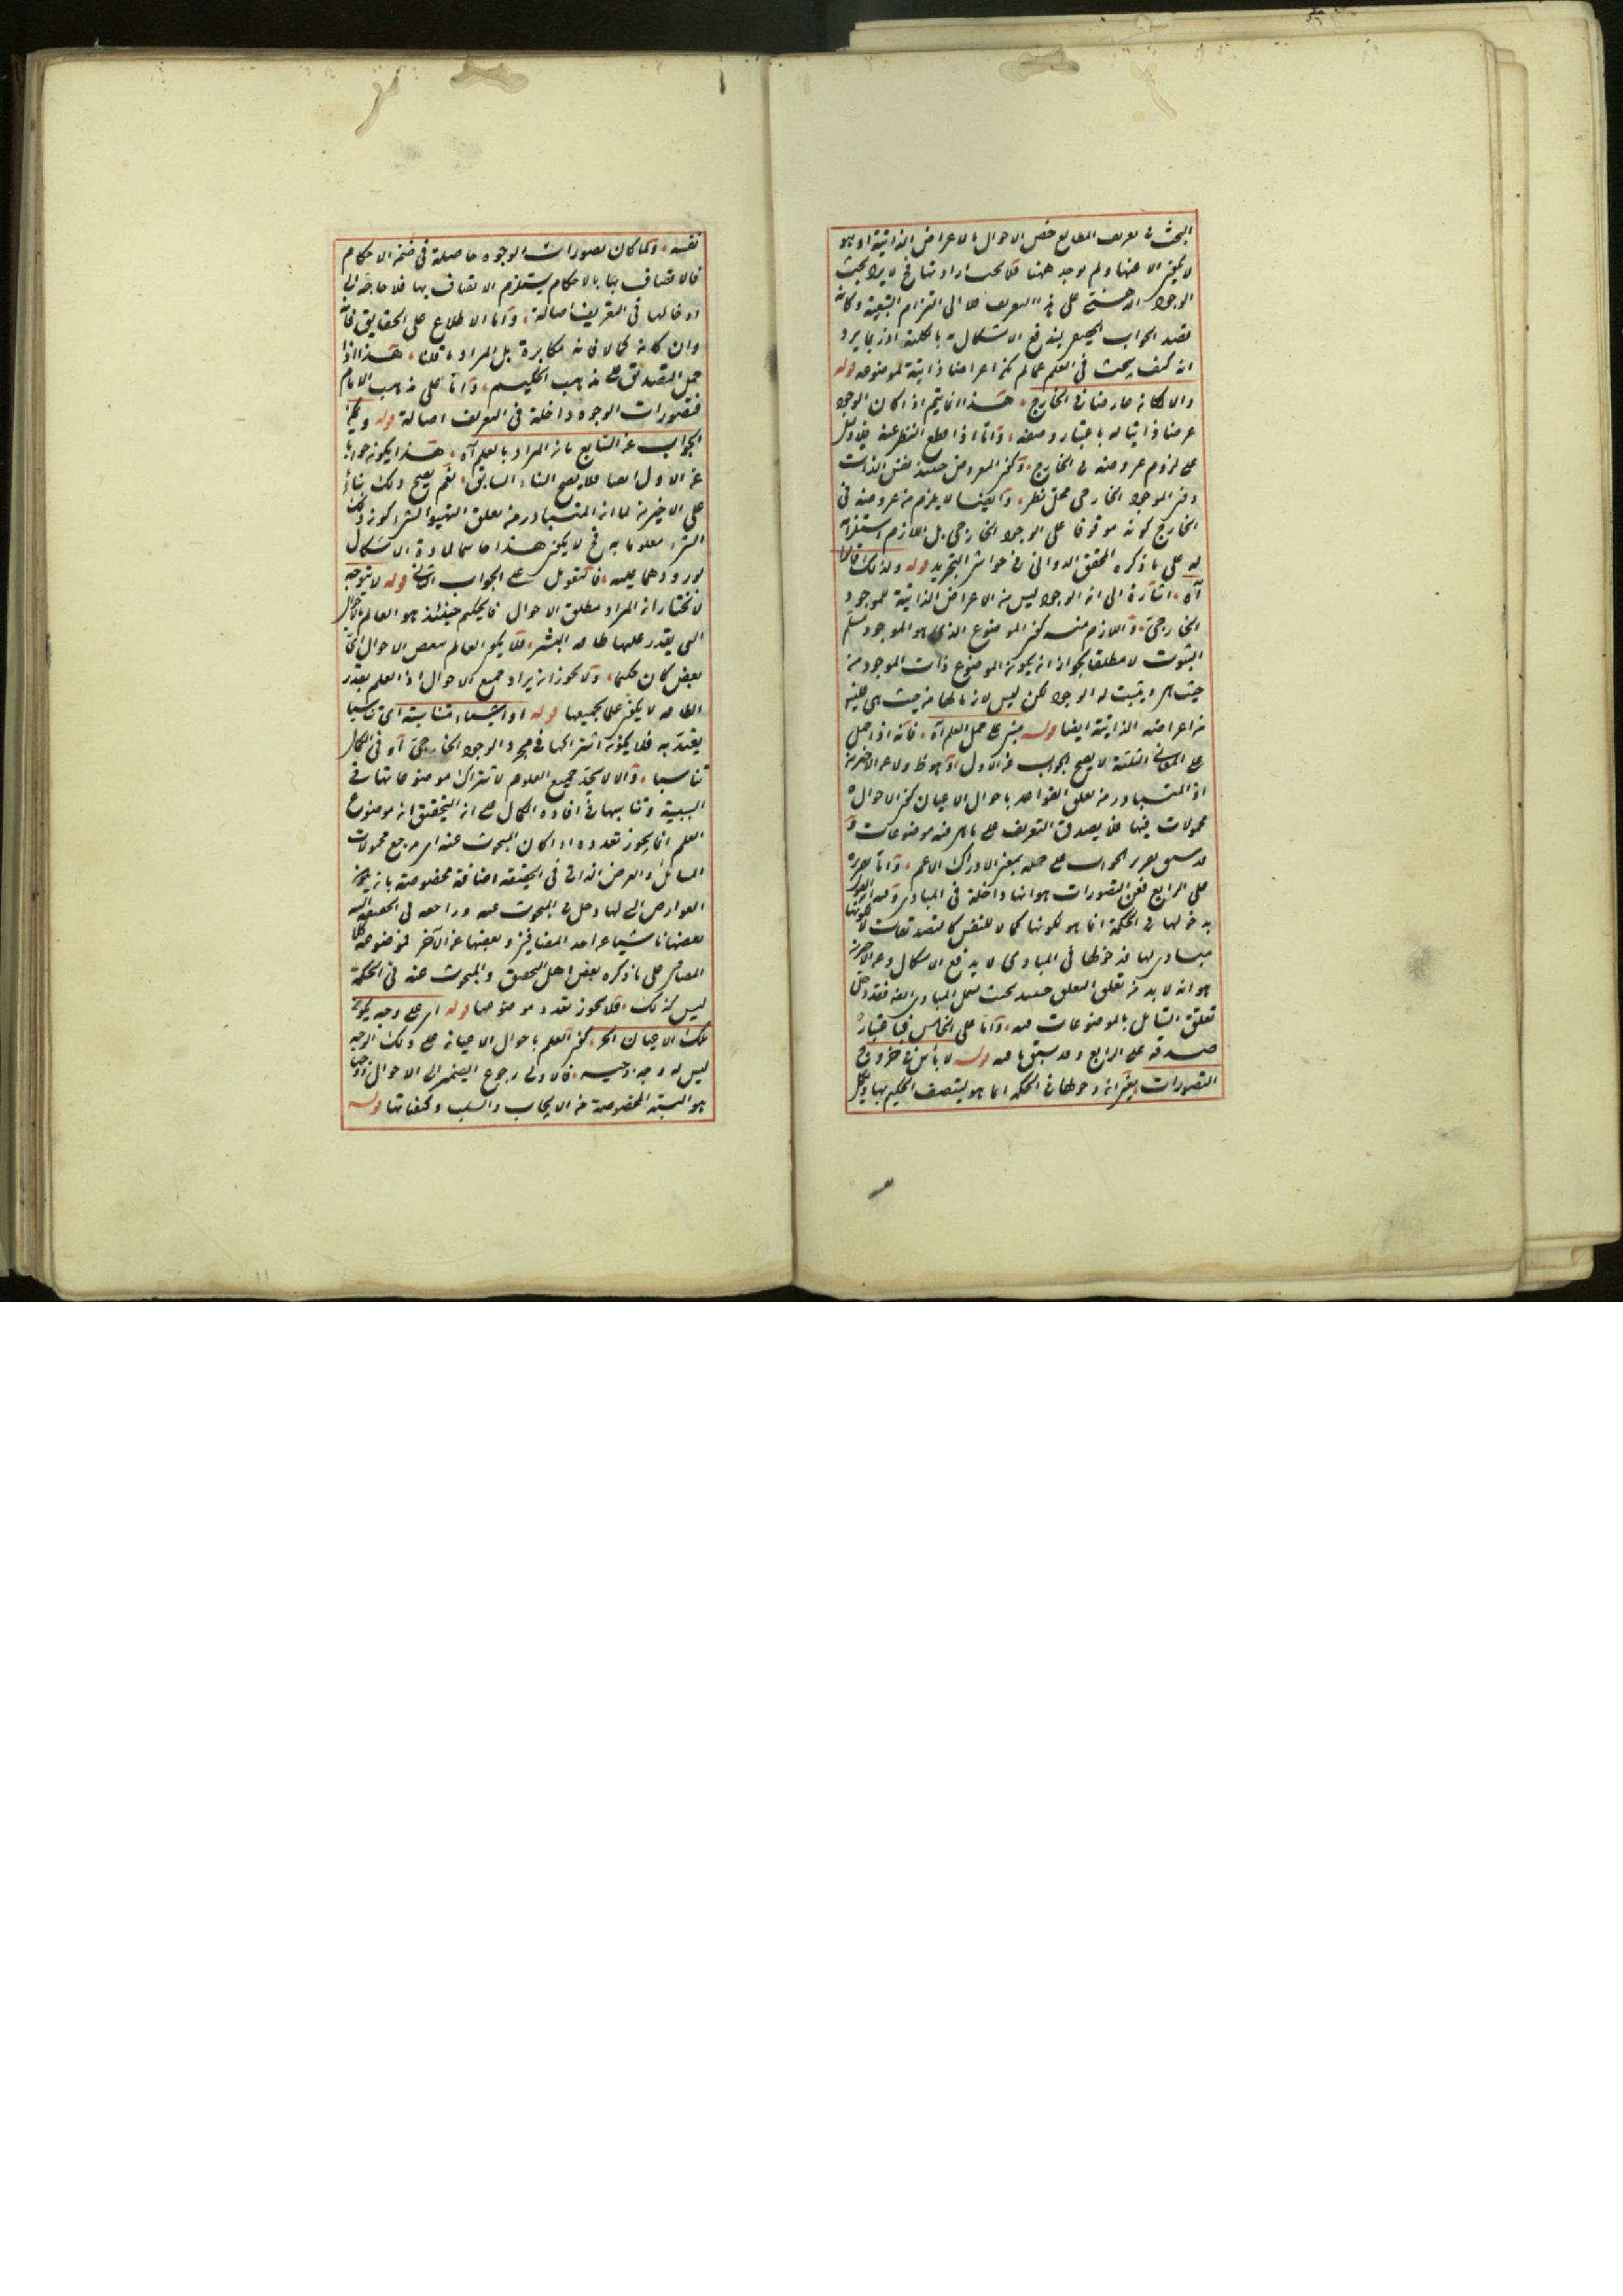 البحث في تعريف المطالع خص الاحوال بالاعراض الذاتية او هو
لا يكون الا عنها ولم يوجد ههنا فلا يجب ارادتها فح لا يرد بحث
الوجود الذهني على هذا التعريف فلا الى التزام التبعية وكانه
قصد الجواب بحيث يندفع الاشكال به بالكلية اذ ربما يرد
انه كيف يبحث في العلم عما لم يكن اعراضا ذاتية لموضوعه قوله
والا لكانه عارضا في الخارج هذا انما يتم اذا كان الوجود
عرضا ذاتيا له باعتبار وصفه واما اذا قطع النظر عنه فلا دليل
على لزوم عروضه في الخارج وكون المعروض حينئذ نفس الذات
دون الموجود الخارجي محل نظر وايضا لا يلزم من عروضه في
الخارج كونه موقوفا على الوجود الخارجي بل اللازم استلزامه
له على ما ذكره المحقق الدواني في حواشي التجريد قوله ولذلك قالوا
آه اشارة الى ان الوجود ليس من الاعراض الذاتية للموجود
الخارجي واللازم منه كون الموضوع الذي هو الموجود مسلم
الثبوت لا مطلقا لجواز ان يكون الموضوع ذات الموجود من
حيث هي ويثبت له الوجود لكن ليس لازما لها من حيث هي فليس
من اعراضه الذاتية ايضا قوله مبني على حمل العلم آه فانه اذا حمل
على المعاني الثلثة لا يصح الجواب عن الاول وهو ظ ولا عن الاخيرين
اذ المتبادر من تعلق القواعد باحوال الاعيان كون الاحوال
محمولات فيها فلا يصدق التعريف على ما هي فيه موضوعات و
قد سبق تقرير الجواب على حمله بمعنى الادراك الاعم واما تقريره
على الرابع فعن التصورات هو انها داخلة في المبادي وفيه ان القول
بدخولها في الحكمة انما هو لكونها كمالا للنفس كالتصديقات لا لكونها
مبادي لها فدخولها في المبادي لا يدفع الاشكال وعن الاخيرين
هو انه لا بد من تعلق التعلق حينئذ بحيث يشمل المبادي ايضا فقد دخل
تعلق الشامل بالموضوعات فيه واما على الخامس فباعتبار
صدقه على الرابع وقد سبق ما فيه قوله لا بأس في خروج
التصورات يعني ان دخولها في الحكمة انما هو ليتصف الحكيم بها ويكمل
نفسه
نفسه وكما كان تصورات الوجوه حاصلة في ضمن الاحكام
فالاتصاف بها بالاحكام يستلزم الاتصاف بها فلا حاجة الى
ادخالها في التعريف اصالة واما الاطلاع على الحقايق فانه
وان كان كمالا فانه مكابرة بل المراد ما قلنا هذا اذا
حمل التصديق على مذهب الحكيم واما على مذهب الامام
فتصورات الوجوه داخلة في التعريف اصالة قوله ويمكن
الجواب عن السابع بان المراد بالعلم آه هذا يكون جوابا
عن الاول ايضا فلا يصح البناء السابق نعم يصح ذلك بناء
على الاخيرين لما ان المتبادر من تعلق التهيؤ بالشيء كون ذلك
الشيء معلوما به فح لا يكون هذا حاسما لمادة الاشكال
لورودهما عليه فالتعويل على الجواب الثاني قوله لا يتوجه
لانا نختار ان المراد مطلق الاحوال فالحكيم حينئذ هو العالم بالاحوال
التي يقدر عليها طاقة البشر فلا يكون العالم ببعض الاحوال اي
بعض كان حكيما ولا يجوز ان يراد جميع الاحوال اذ العلم بقدر
الطاقة لا يكون على بجميعها قوله او اشياء متناسبة اي تناسبا
يعتد به فلا يكون اشتراكها في مجرد الوجود الخارجي آه في الكمال
تناسبا والا لا يتحد جميع العلوم لاشتراك موضوعاتها في
السببية وتناسبها في افادة الكمال على ان التحقيق ان موضوع
العلم انما يجوز تعدده اذا كان المبحوث عنه اي مرجع محمولات
المسائل والعرض الذاتي في الحقيقة اضافة مخصوصة بان يكون
العوارض التي لها دخل في المبحوث عنه وراجعة في الحقيقة اليه
بعضها ناشيا عن احد المضافين وبعضها عن الآخر فموضوعه كلا
المضافين على ما ذكره بعض اهل التحقيق والمبحوث عنه في الحكمة
ليس كذلك فلا يجوز تعدد موضوعها قوله اي على وجه يكون
تلك الاعيان الخ كون العلم باحوال الاعيان على ذلك الوجه
ليس له وجه وجيه فالاولى رجوع الضمير الى الاحوال ووجها
هو النسبة المخصوصة من الايجاب والسلب وكيفياتها قوله